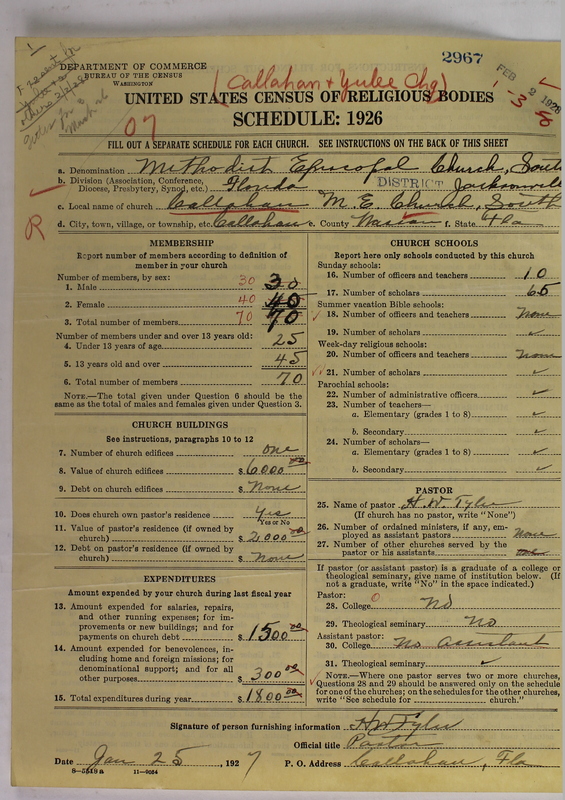 2967
FEB 2 1928
DEPARTMENT OF COMMERCE
BUREAU OF THE CENSUS
WASHINGTON
(Callahan & Yulee Chg)
UNITED STATES CENSUS OF RELIGIOUS BODIES
SCHEDULE: 1926
FILL OUT A SEPARATE SCHEDULE FOR EACH CHURCH. SEE INSTRUCTIONS ON THE BACK OF THIS SHEET
a. Denomination Methodist Episcopal Church, South
b. Division (Association, Conference, Diocese, Presbytery, Synod, etc.) Florida DISTRICT Jacksonville
c. Local name of church Callahan M. E. Church, South
d. City, town, village, or township, etc. Callahan e. County Nassau f. State Fla
MEMBERSHIP
Report number of members according to definition of
member in your church
Number of members, by sex:
1. Male 30 30
2. Female 40 40
3. Total number of members 70 70
Number of members under and over 13 years old:
4. Under 13 years of age 25
5. 13 years old and over 45
6. Total number of members 70
NOTE.—The total given under Question 6 should be
same as the total of males and females given under Question 3.
CHURCH BUILDINGS
See instructions, paragraphs 10 to 12
7. Number of church edifices one
8. Value of church edifices $ 6000.00
9. Debt on church edifices $ None
10. Does church own pastor's residence Yes
Yes or No
11. Value of pastor's residence (if owned by
church) $ 2000.00
12. Debt on pastor's residence (if owned by
church) $ None
EXPENDITURES
Amount expended by your church during last fiscal year
13. Amount expended for salaries, repairs,
and other running expenses; for im-
provements or new buildings; and for
payments on church debt $ 1500 00
14. Amount expended for benevolences, in-
cluding home and foreign missions; for
denominational support; and for all
other purposes $ 300 00
15. Total expenditures during year $ 1800 00
CHURCH SCHOOLS
Report here only schools conducted by this church
Sunday schools:
16. Number of officers and teachers 10
17. Number of scholars 65
Summer vacation Bible schools:
18. Number of officers and teachers None
19. Number of scholars ✓
Week-day religious schools:
20. Number of officers and teachers None
21. Number of scholars ✓
Parochial schools:
22. Number of administrative officers ✓
23. Number of teachers—
a. Elementary (grades 1 to 8) ✓
b. Secondary ✓
24. Number of scholars—
a. Elementary (grades 1 to 8) ✓
b. Secondary ✓
PASTOR
25. Name of pastor H. W. Tyler
(If church has no pastor, write "None")
26. Number of ordained ministers, if any, em-
ployed as assistant pastors None
27. Number of other churches served by the
pastor or his assistants
If pastor (or assistant pastor) is a graduate of a college or
theological seminary, give name of institution below. (If
not a graduate, write "No" in the space indicated.)
Pastor:
28. College No
29. Theological seminary No
Assistant pastor:
30. College No assistant
31. Theological seminary ✓
NOTE.—Where one pastor serves two or more churches,
Questions 28 and 29 should be answered only on the schedule
for one of the churches; on the schedules for the other churches,
write "See schedule for ____ church."
Signature of person furnishing information H. W. Tyler
Official title Pastor
Date Jan 25, 1927 P. O. Address Callahan, Fla
8—5549 a 11—9054